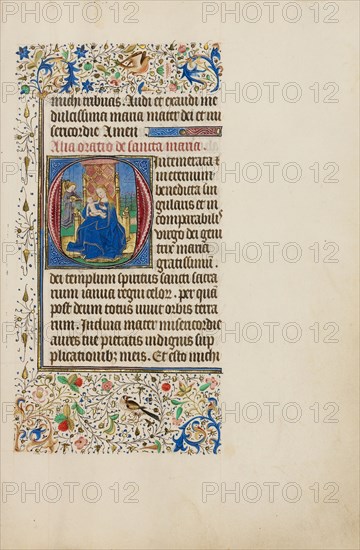 michi tribuas. Audi et exaudi me
dulcissima maria mater dei et mi
sericordie Amen
Alia oratio de sancta maria.
O Intemerata et
in eternum
benedicta sin
gularis et in
comparabilis
virgo dei geni
trix maria
gratissimum
dei templum spiritus sancti sacra
rium ianua regni celor. per quā
post deum totus vivit orbis terra
rum. Inclina mater misericordie
aures tue pietatis indignis sup
plicationibꝫ meis. Et esto michi
PHOTO 12